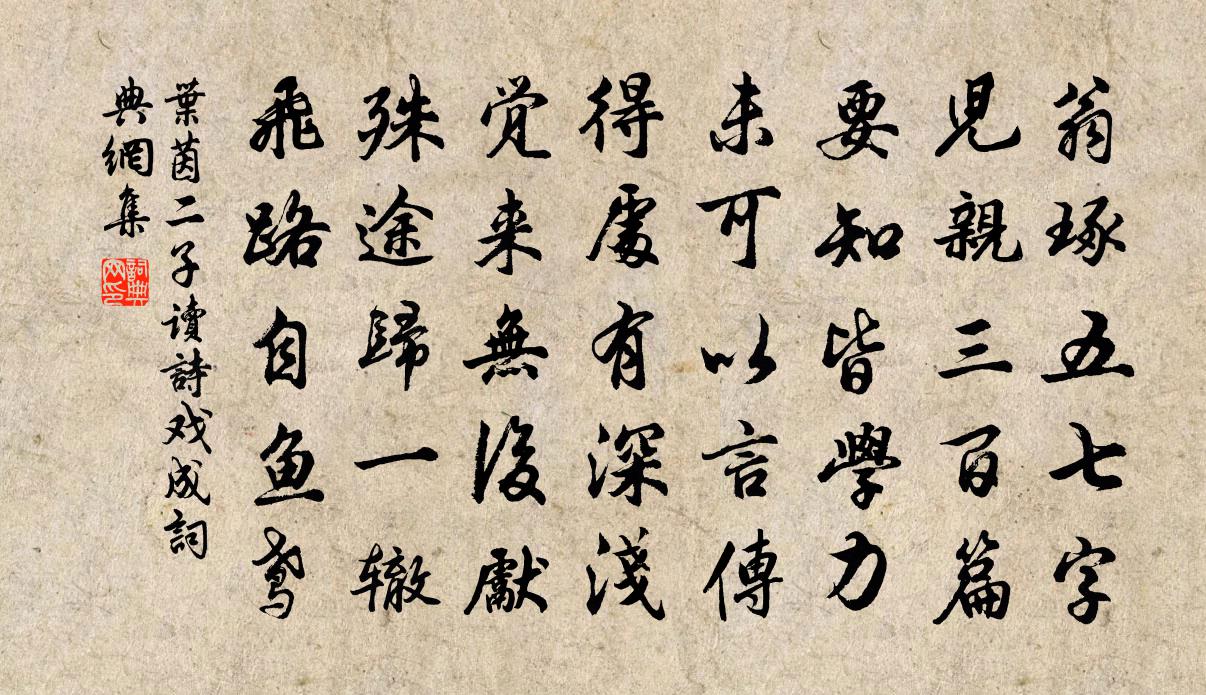 翁琢五七字
児親三百篇
要知皆學力
未可以言傳
得處有深淺
覚来無後獻
殊途歸一辙
飛路自鱼鸢
葉茵二子讀詩戏成詞
典網集
詞典
网印